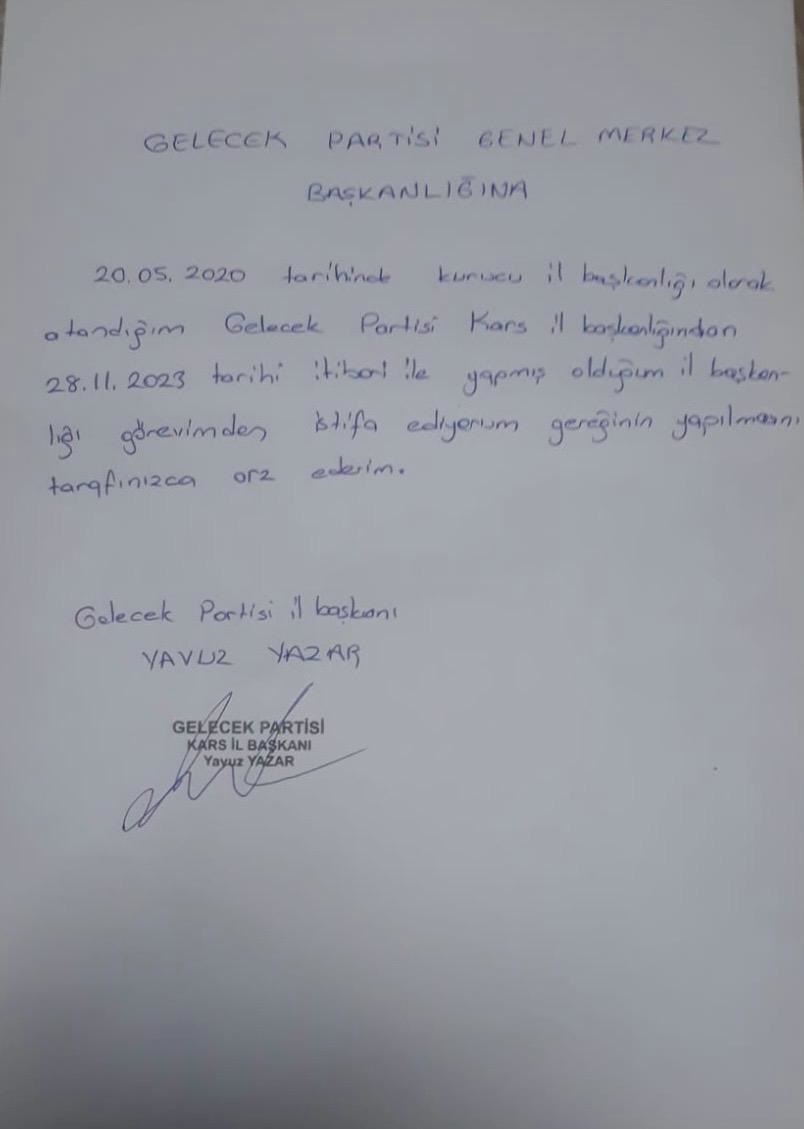 GELECEK PARTİSİ GENEL MERKEZ
BAŞKANLIĞINA
20.05.2020 tarihinde kurucu il başkanlığı olarak
atandığım Gelecek Partisi Kars il başkanlığından
28.11.2023 tarihi itibari ile yapmış olduğum il başkan-
lığı görevimden istifa ediyorum gereğinin yapılmasını
tarafınızca arz ederim.
Gelecek Partisi il başkanı
YAVUZ YAZAR
GELECEK PARTİSİ
KARS İL BAŞKANI
Yavuz YAZAR